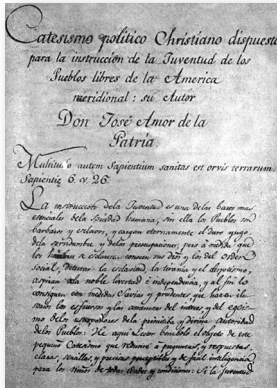 Catesismo político Christiano dispuesto
para la instruccion de la Juventud de los
Pueblos libres de la America
meridional: su Autor
Don José Amor de la
Patria
Multitudo autem Sapientium sanitas est orvis terrarum.
Sapientiæ 6 v. 26.
La instruccion dela Juventud es una delas bases mas
esenciales dela sociedad humana, sin ella los Pueblos son
barbaros y esclavos, y cargan eternamente el duro yugo
dela servidumbre y delas preocupaciones, pero à medida que
los hombres se esclarecen conocen sus dros y los del orden
social, detestan la esclavitud, la tirania y el despotismo,
aspiran àla noble livertad è independencia, y al fin lo
consiguen con medidas sàvias y prudentes que hacen ilu-
sorios los esfuerzos y las del interes y del egois-
mo delos usurpadores dela primitiva y divina autoridad
delos Pueblos. He aqui el objeto de este
pequeño Catesismo que reducire à preguntas, y respuestas,
claras, sencillas, y precisas perceptibles y de facil inteligencia
para los niños de todas clases y condiciones: Si la Juventud